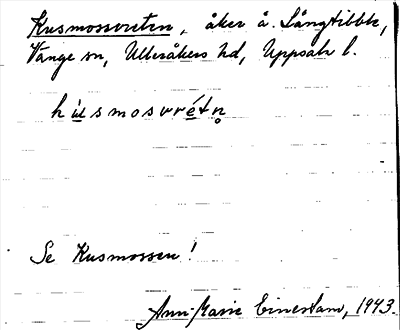 Kusmossvreten, åker å. Långtibble,
Vänge sn, Ulleråkers hd, Uppsala l.
kúsmosvrétn̥
Se Kusmossen!
Ann-Marie Einerstam, 1943.